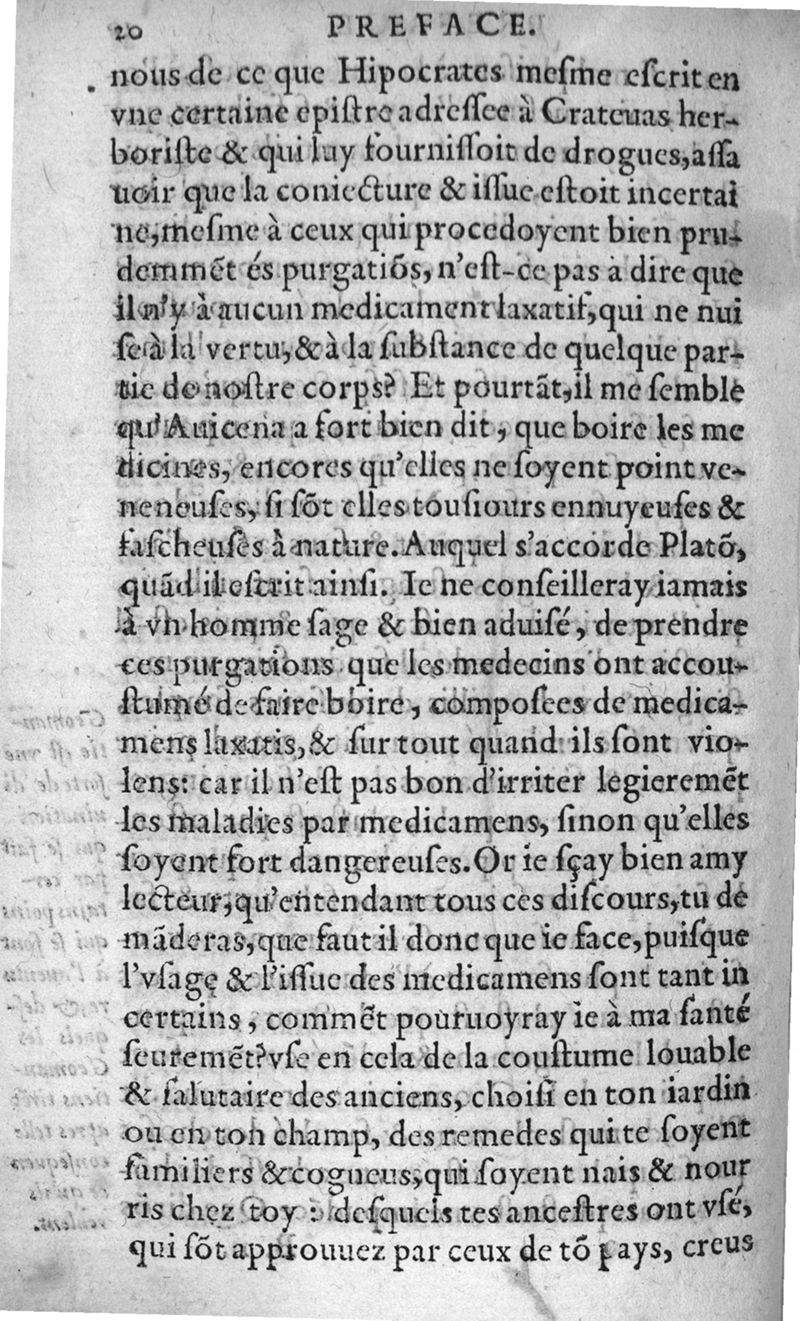 20 PREFACE.
nous de ce que Hipocrates meſme eſcrit en
vne certaine epiſtre adreſſee à Crateuas her-
boriſte & qui luy fourniſſoit de drogues, aſſa
uoir que la coniecture & iſſue eſtoit incertai
ne, meſme à ceux qui procedoyent bien pru-
demmẽt és purgatiõs, n'eſt-ce pas a dire que
il n'y à aucun medicament laxatif, qui ne nui
ſe à la vertu, & à la ſubſtance de quelque par-
tie de noſtre corps? Et pourtãt, il me ſemble
qu'Auicena a fort bien dit, que boire les me
dicines, encores qu'elles ne ſoyent point ve-
neneuſes, ſi ſõt elles touſiours ennuyeuſes &
faſcheuſes à nature. Auquel s'accorde Platõ,
quãd il eſcrit ainſi. Ie ne conſeilleray iamais
à vn homme ſage & bien aduiſé, de prendre
ces purgations que les medecins ont accou-
ſtumé de faire boire, compoſees de medica-
mens laxatis, & ſur tout quand ils ſont vio-
lens: car il n'eſt pas bon d'irriter legieremẽt
les maladies par medicamens, ſinon qu'elles
ſoyent fort dangereuſes. Or ie ſçay bien amy
lecteur, qu'entendant tous ces diſcours, tu de
mãderas, que faut il donc que ie face, puiſque
l'vſage & l'iſſue des medicamens ſont tant in
certains, commẽt pouruoyray ie à ma ſanté
ſeuremẽt? vſe en cela de la couſtume louable
& ſalutaire des anciens, choiſi en ton iardin
ou en ton champ, des remedes qui te ſoyent
familiers & cogneus, qui ſoyent nais & nour
ris chez toy : deſquels tes anceſtres ont vſé,
qui ſõt approuuez par ceux de tõ pays, creus